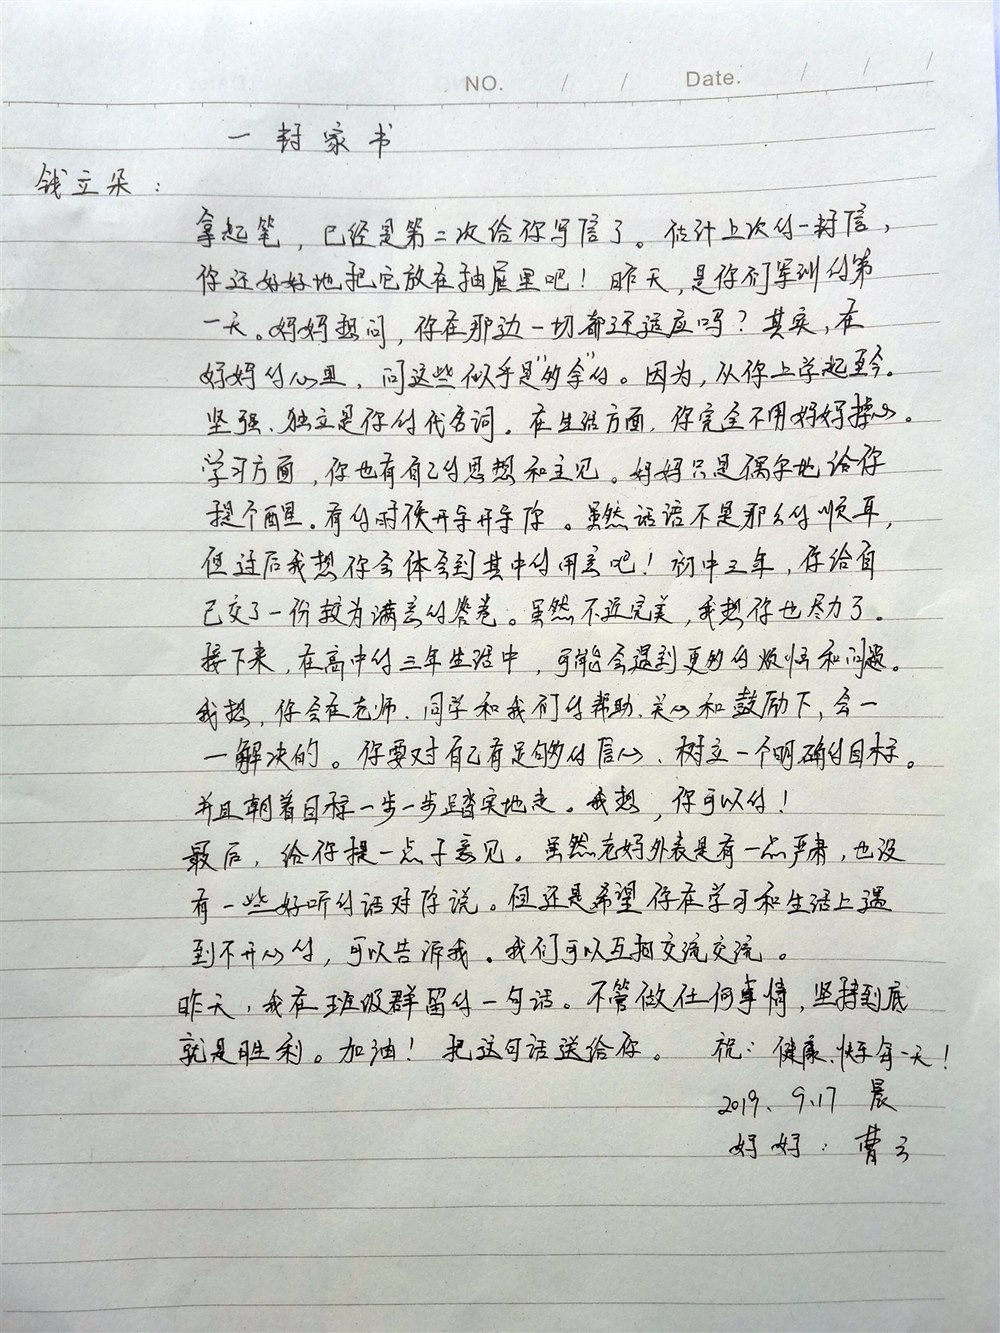 NO. / / Date. / / /
一封家书
钱立朵：
拿起笔，已经是第二次给你写信了。估计上次的一封信，
你还好好地把它放在抽屉里吧！昨天，是你们军训的第
一天。妈妈想问，你在那边一切都还适应吗？其实，在
妈妈的心里，问这些似乎是"多余"的。因为，从你上学起至今。
坚强、独立是你的代名词。在生活方面，你完全不用妈妈操心。
学习方面，你也有自己的思想和主见。妈妈只是偶尔地给你
提个醒。有的时候开导开导你。虽然话语不是那么的顺耳，
但过后我想你会体会到其中的用意吧！初中三年，你给自
己交了一份较为满意的答卷。虽然不近完美，我想你也尽力了。
接下来，在高中的三年生活中，可能会遇到更多的烦恼和问题。
我想，你会在老师、同学和我们的帮助、关心和鼓励下，会一
一解决的。你要对自己有足够的信心、树立一个明确的目标。
并且朝着目标一步一步踏实地走。我想，你可以的！
最后，给你提一点子意见。虽然老妈外表是有一点严肃，也没
有一些好听的话对你说。但还是希望你在学习和生活上遇
到不开心的，可以告诉我。我们可以互相交流交流。
昨天，我在班级群留的一句话。不管做任何事情，坚持到底
就是胜利。加油！把这句话送给你。 祝：健康、快乐每一天！
2019、9、17 晨
妈妈：曹云